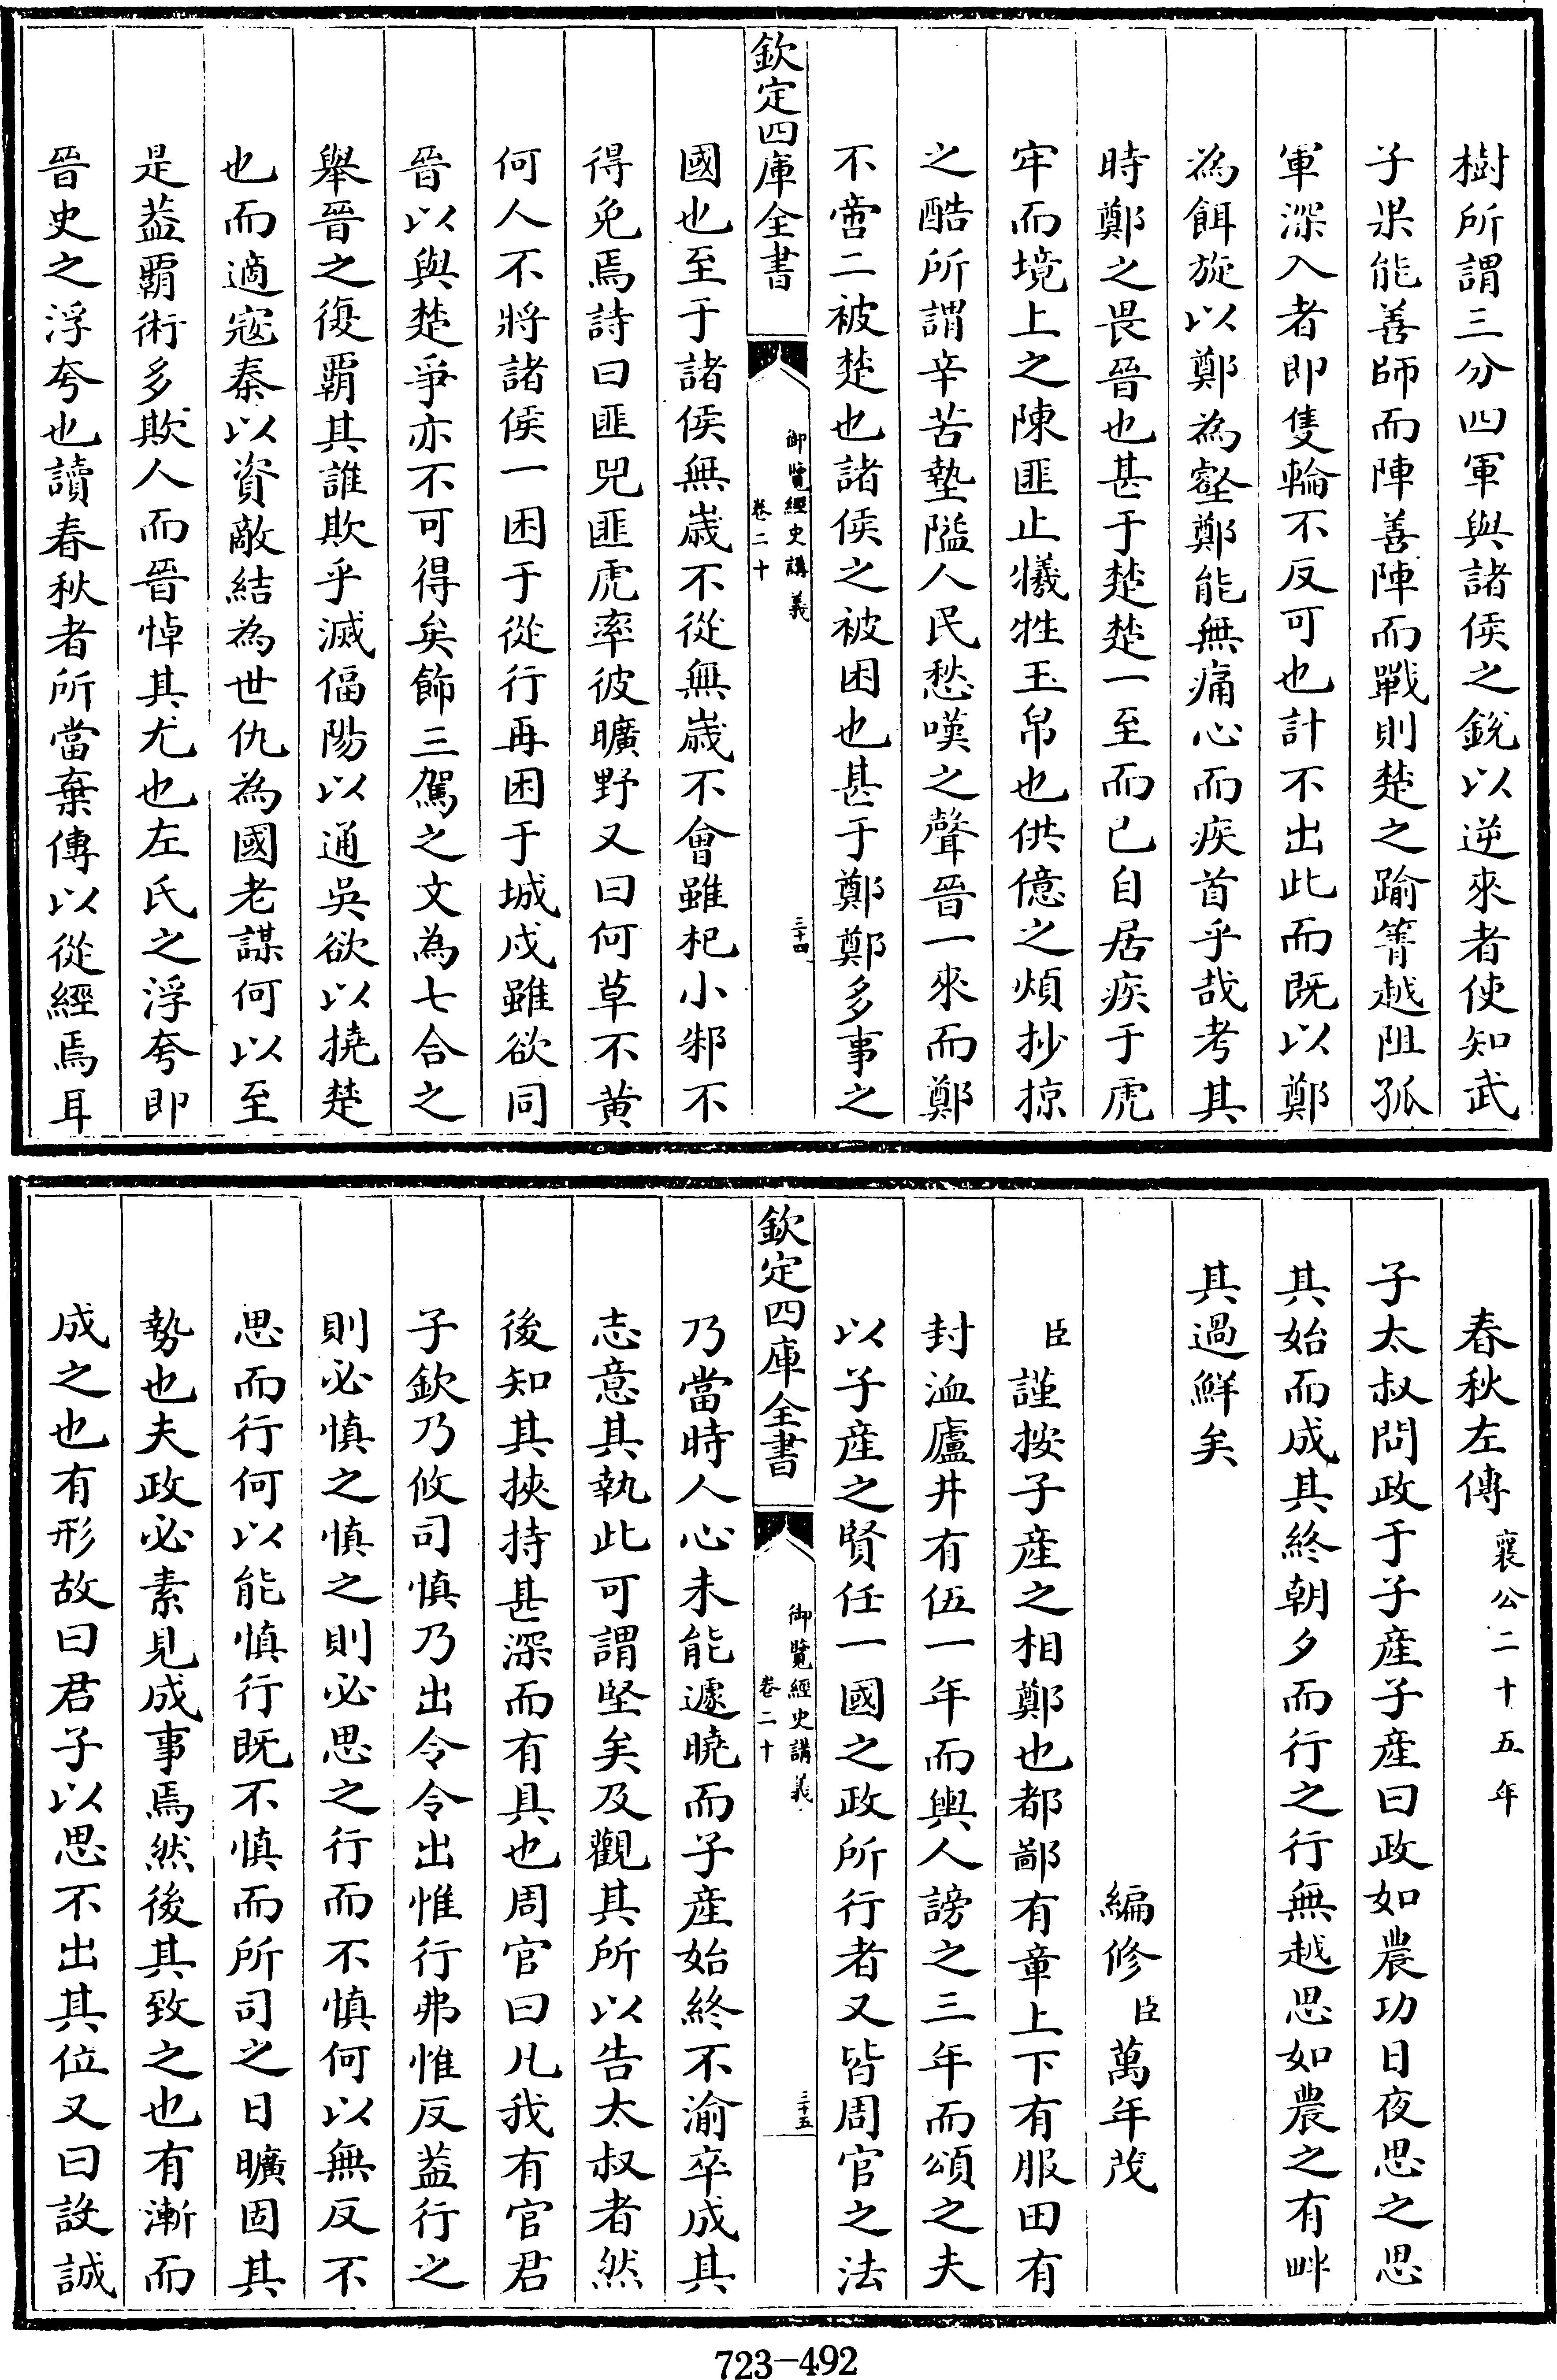 樹所謂三分四軍與諸侯之銳以逆來者使知武
子果能善師而陣善陣而戰則楚之踰箐越阻孤
軍深入者即隻輪不反可也計不出此而既以鄭
為餌旋以鄭為壑鄭能無痛心而疾首乎哉考其
時鄭之畏晉也甚于楚楚一至而已自居疾于虎
牢而境上之陳匪止犧牲玉帛也供億之煩抄掠
之酷所謂辛苦墊隘人民愁嘆之聲晉一來而鄭
不啻二被楚也諸侯之被困也甚于鄭鄭多事之
欽定四庫全書
御覽經史講義
卷二十
三十四
國也至于諸侯無歲不從無歲不會雖杞小邾不
得免焉詩曰匪兕匪虎率彼曠野又曰何草不黄
何人不將諸侯一困于從行再困于城戍雖欲同
晉以與楚爭亦不可得矣飾三駕之文為七合之
舉晉之復霸其誰欺乎滅偪陽以通吳欲以撓楚
也而適寇秦以資敵結為世仇為國老謀何以至
是葢霸術多欺人而晉悼其尤也左氏之浮夸即
晉史之浮夸也讀春秋者所當棄傳以從經焉耳
春秋左傳襄公二十五年
子太叔問政于子産子産曰政如農功日夜思之思
其始而成其終朝夕而行之行無越思如農之有畔
其過鮮矣
編修臣萬年茂
臣謹按子産之相鄭也都鄙有章上下有服田有
封洫廬井有伍一年而輿人謗之三年而頌之夫
以子産之賢任一國之政所行者又皆周官之法
欽定四庫全書
御覽經史講義
卷二十
三十五
乃當時人心未能遽曉而子産始終不渝卒成其
志意其執此可謂堅矣及觀其所以告太叔者然
後知其挾持甚深而有具也周官曰凡我有官君
子欽乃攸司慎乃出令令出惟行弗惟反葢行之
則必慎之慎之則必思之行而不慎何以無反不
思而行何以能慎行既不慎而所司之日曠固其
勢也夫政必素見成事焉然後其致之也有漸而
成之也有形故曰君子以思不出其位又曰設誠
723-492